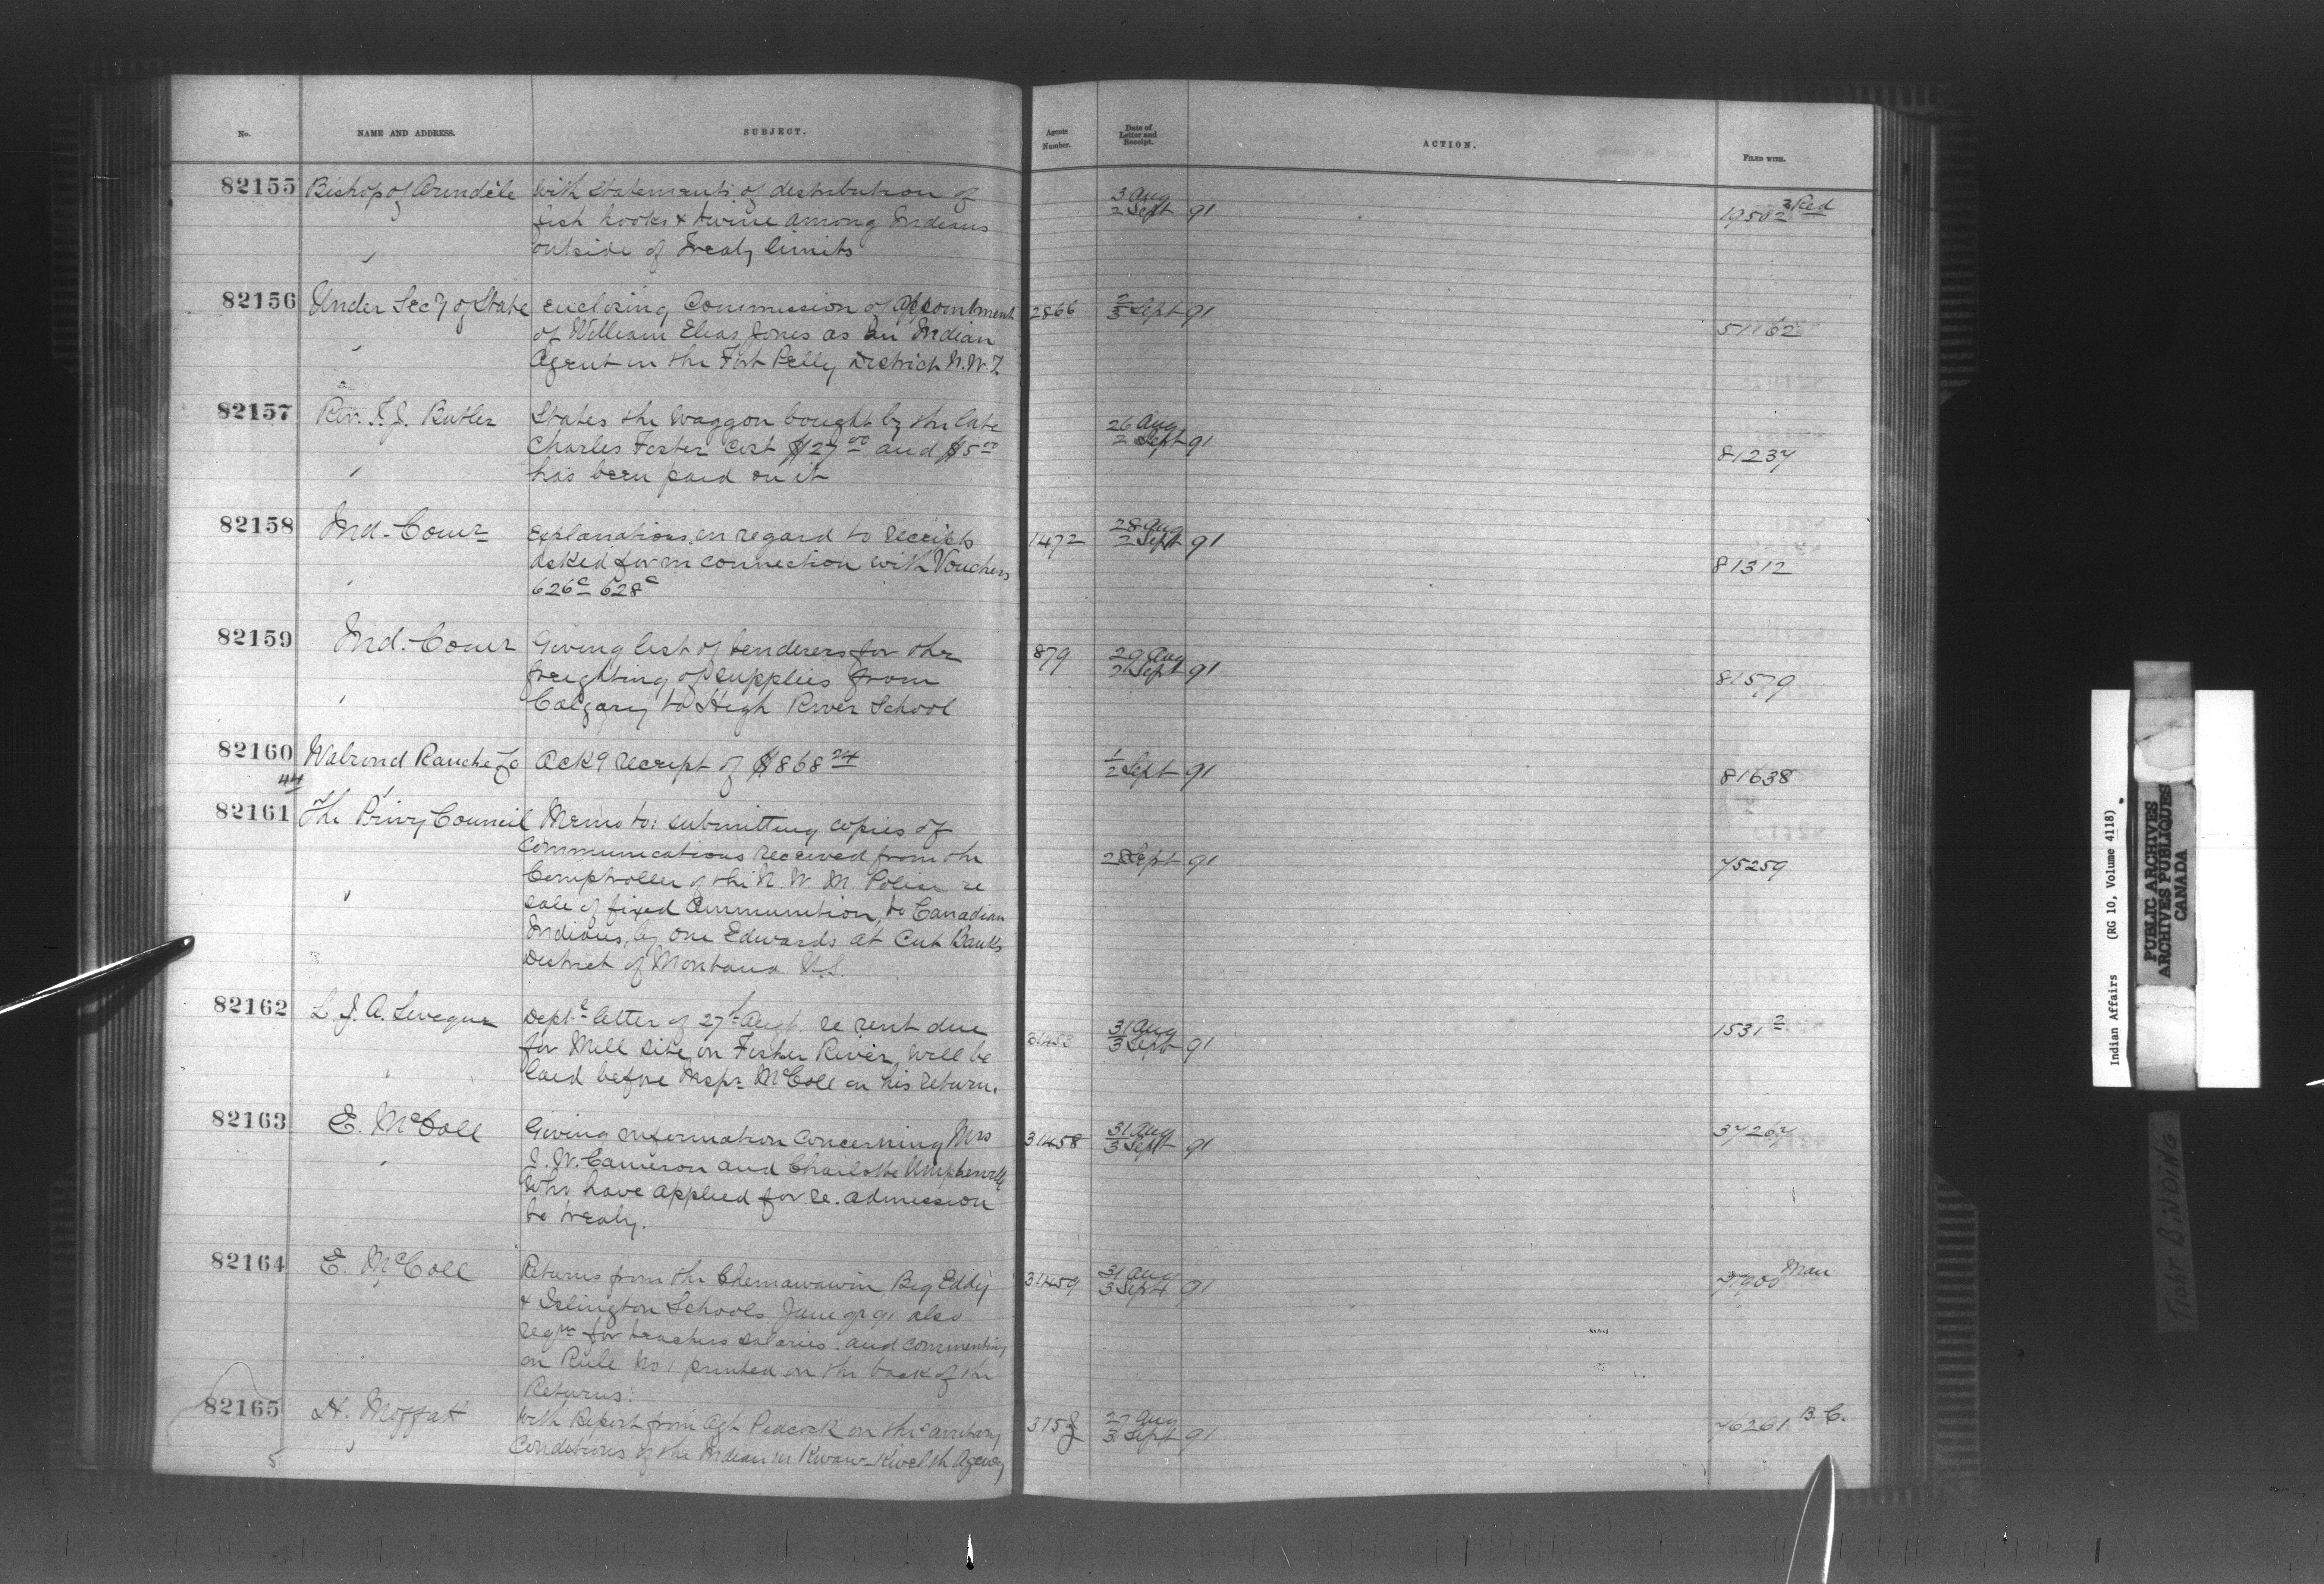 No. NAME AND ADDRESS. SUBJECT. Agents Number. Date of Letter and Receipt. ACTION. FILED WITH.
82155 Bishop of Arindèle With Statements of distribution of
fish hooks & twine among Indians
outside of Treaty limits
3 Aug
2 Sept 91
19502 3 Red
82156 Under Secy of State enclosing Commission of Appointment 2866 2/3 Sept 91
of William Elias Jones as an Indian 51162
Agent in the Fort Pelly District N.W.T.
82157 Rev. T. J. Butler States the Waggon bought by the late
Charles Foster cost $27 00 and $5 00
has been paid on it
26 Aug
2 Sept 91
81237
82158 Ind. Comr Explanations in regard to receipts 1472
asked for in connection with Vouchers
626c 628c
28 Aug
2 Sept 91
81312
82159 Ind. Comr Giving list of tenderers for the 879
freighting of supplies from
Calgary to High River School
29 Aug
2 Sept 91
81579
82160 Walrond Ranche Co Ackg receipt of $868 24 1/2 Sept 91 81638
44
82161 The Privy Council Memo to: submitting copies of
Communications received from the 2 Sept 91 75259
Comptroller of the N. W. M. Police re
sale of fixed Ammunition, to Canadian
Indians, by one Edwards at Cut Banks
District of Montana U.S.
82162 L. J. A. Leveque Dept letter of 27th Augt. re rent due
for Mill site on Fisher River will be 31453
laid before Inspr McColl on his return.
31 Aug
3 Sept 91
1531 2
82163 E. McColl Giving information concerning Mrs 31458
J. W. Cameron and Charlotte Umpherville
who have applied for re-admission
to treaty.
31 Aug
3 Sept 91
37267
82164 E. McColl Returns from the Chemawawin Big Eddy 31459
& Islington Schools June qr 91 also
reqn for teachers salaries and commenting
on Rule No 1 printed on the back of the
Returns.
31 Aug
3 Sept 91
Man
82165 H. Moffatt With Report from Agt Pidcock on the sanitary
Conditions of the Indians in Kwaw-Kwelth Agency
27 Aug
3 Sept 91
76261 B.C.
5
Indian Affairs (RG 10, Volume 4118)
PUBLIC ARCHIVES
ARCHIVES PUBLIQUES
CANADA
TIGHT BINDING